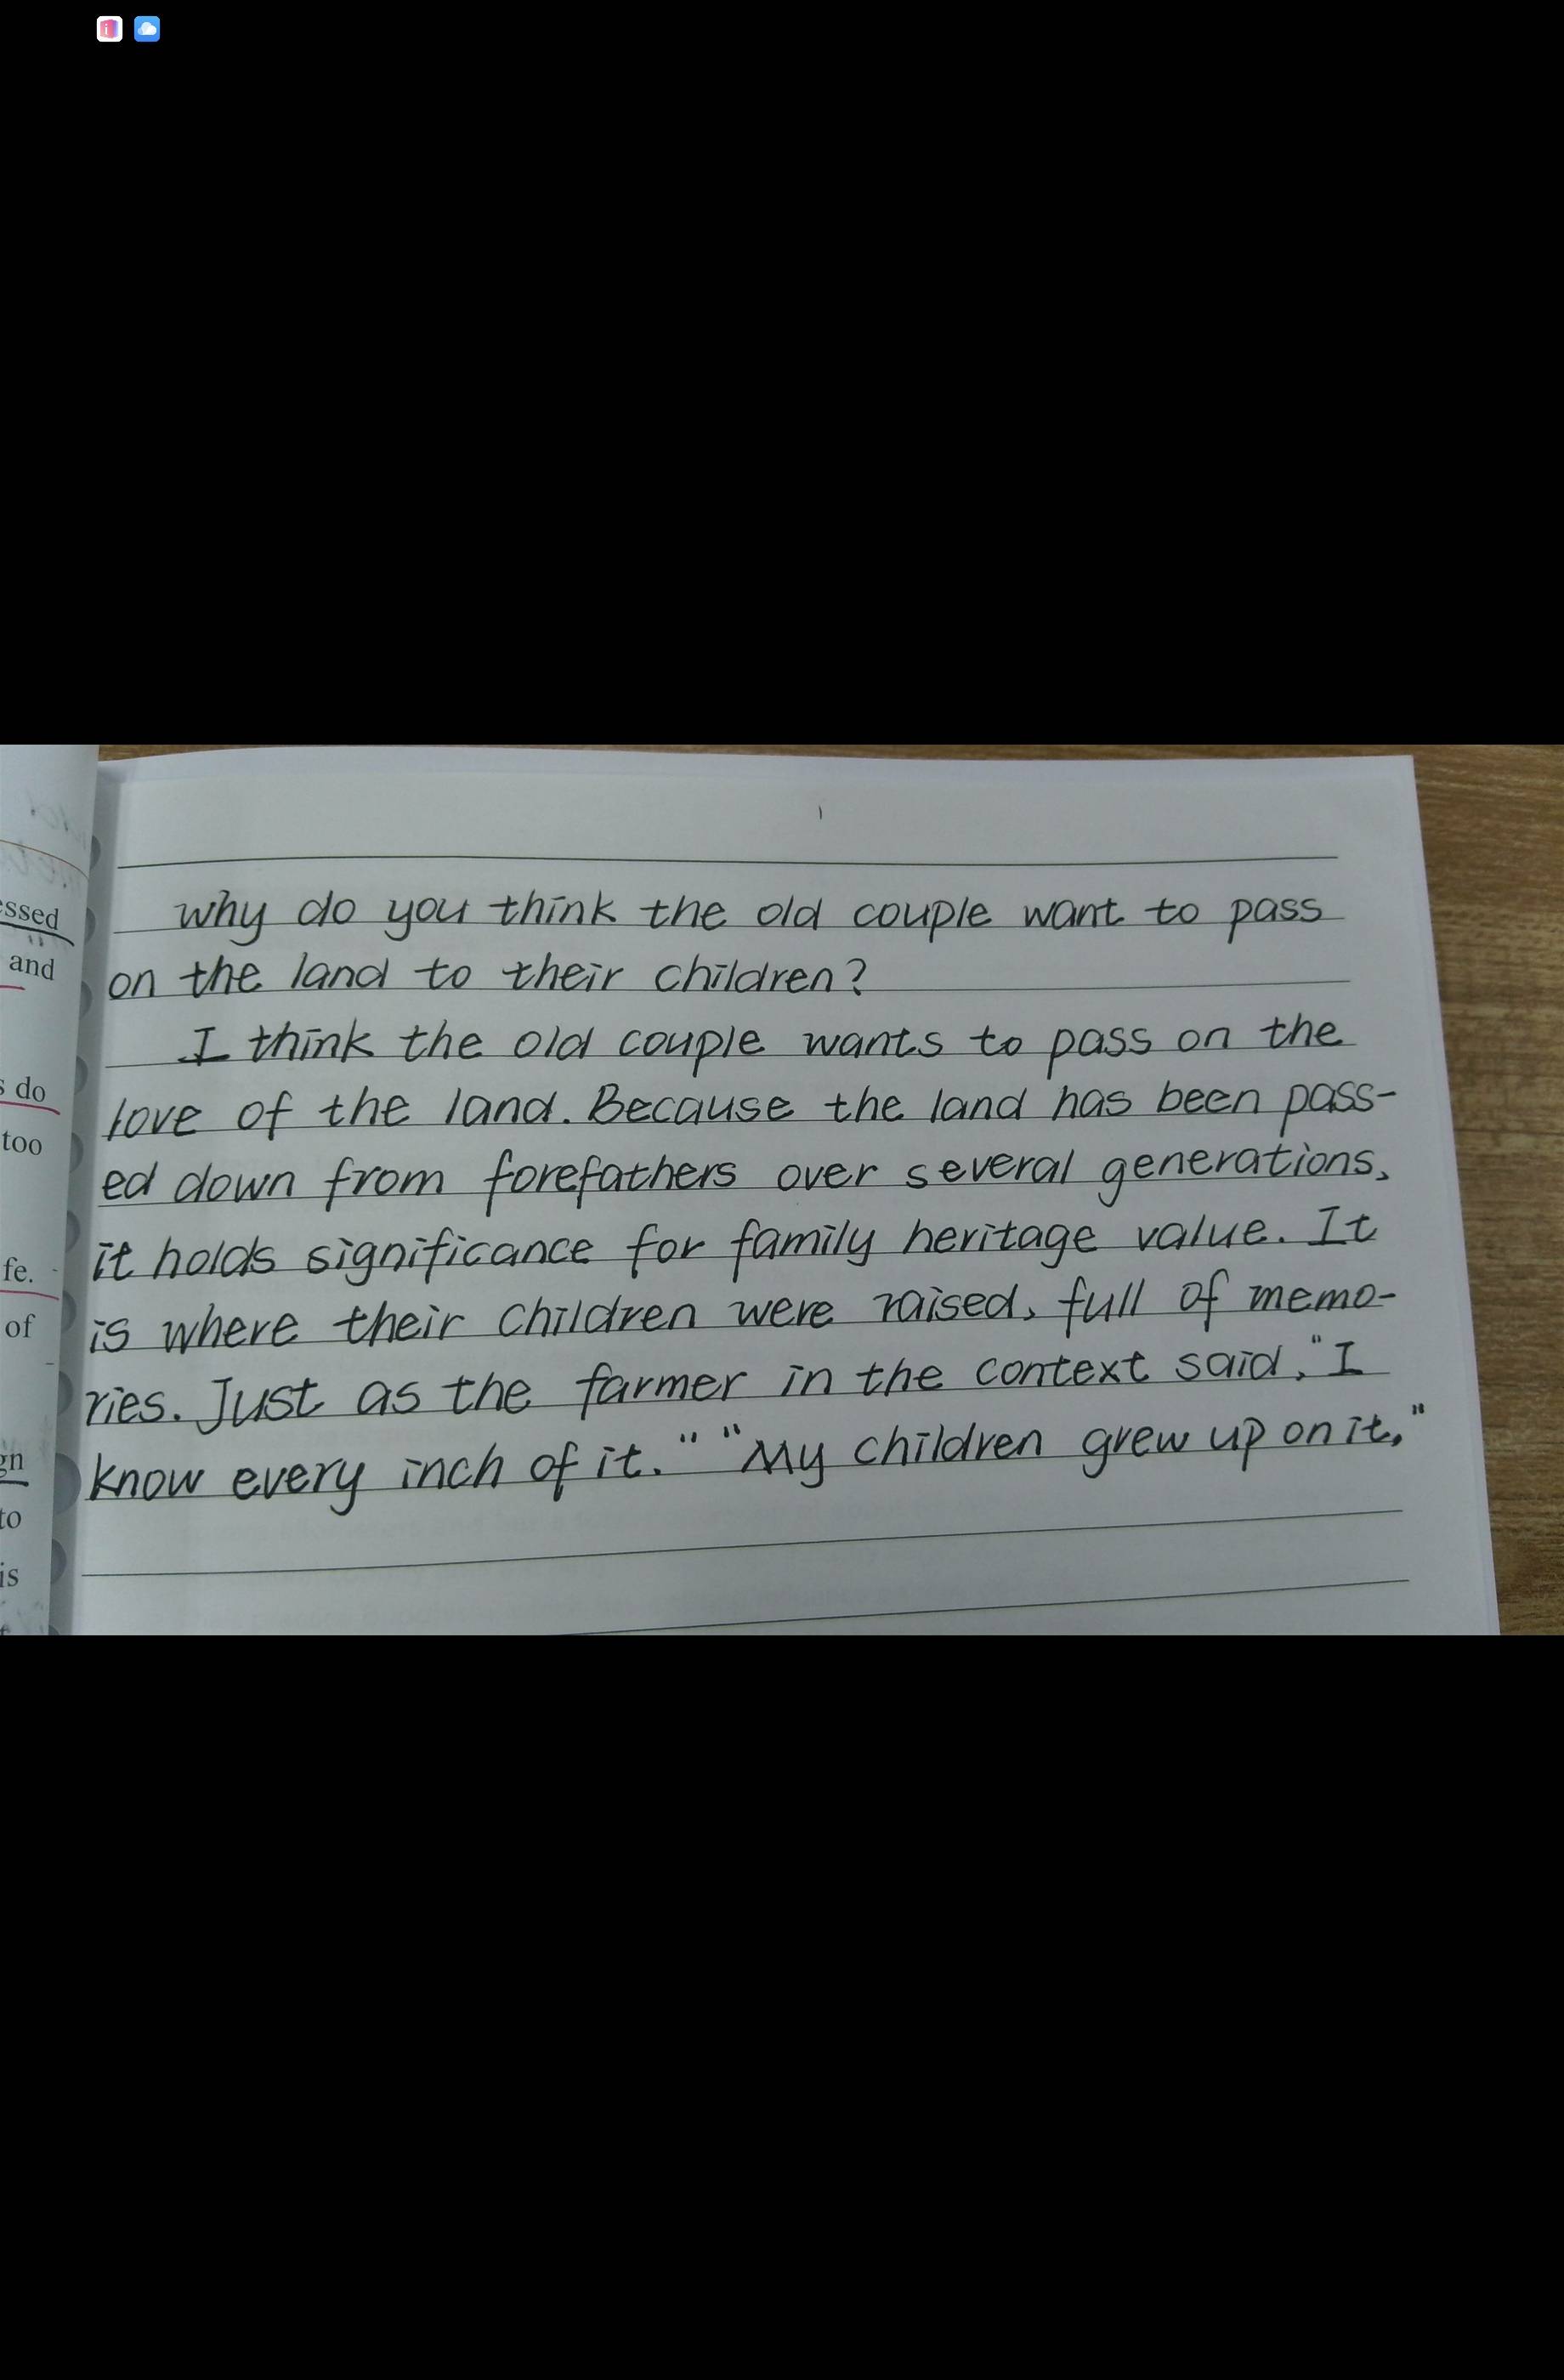 why do you think the old couple want to pass
on the land to their children?
I think the old couple wants to pass on the
love of the land. Because the land has been pass-
ed down from forefathers over several generations,
it holds significance for family heritage value. It
is where their children were raised, full of memo-
ries. Just as the farmer in the context said, "I
know every inch of it." "My children grew up on it,"
essed
and
s do
too
fe.
of
gn
to
is